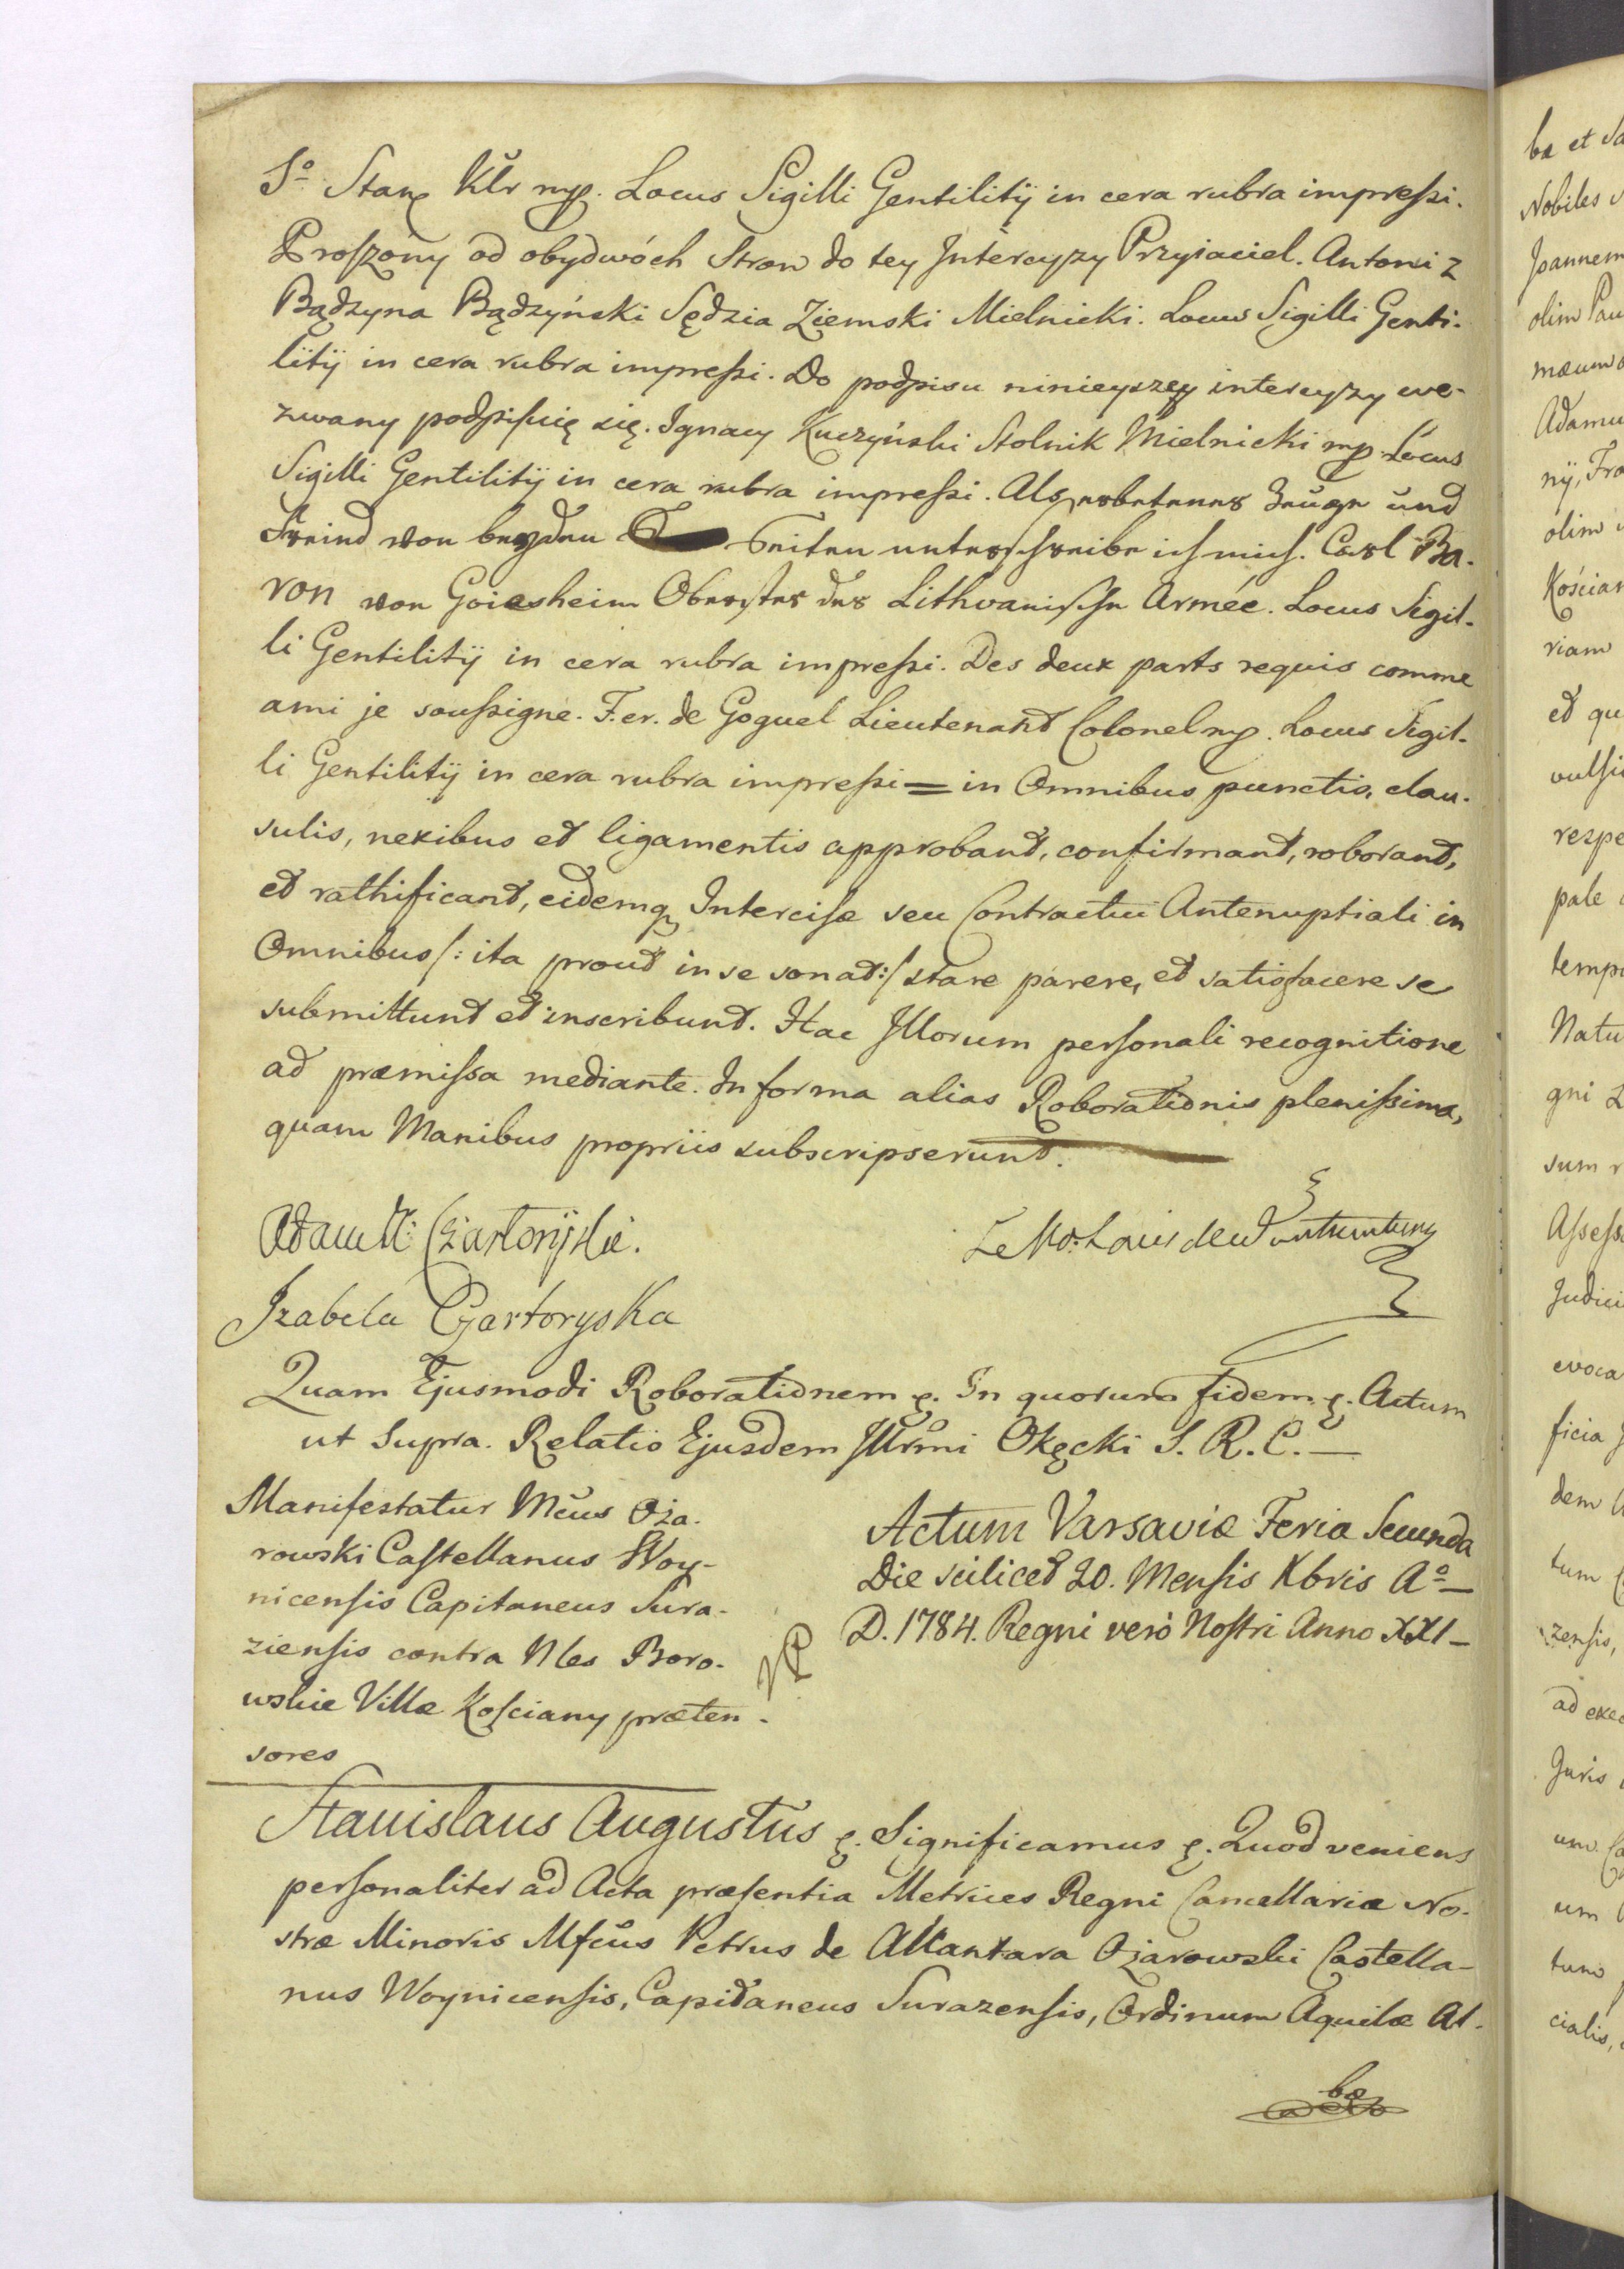 So. Stanę Klr mp. Locus Sigilli Gentilitÿ in cera rubra impreſsi.
Proſzony od obydwóch Stron do tey Intercyzy Przyiaciel. Antoni z
Bądzyna Bądzyński Sędzia Ziemski Mielnicki. Locus Sigilli Genti-
litÿ in cera rubra impreſsi. Do podpisu ninieyszey intercyzy we-
zwany podpiſuię się. Ignacy Kuczyński Stolnik Mielnicki mp. Locus
Sigilli Gentilitÿ in cera rubra impreſsi. Als erbetener Zeuge und
Freind von beyden Seiten unterſchreibe ich mich. Carl Ba-
ron von Goiesheim Oberſter der Lithvaniſche Armée. Locus Sigil-
li Gentilitÿ in cera rubra impreſsi. Des deux parts requis comme
ami je souſsigne. F. er. de Goguel Lieutenant Colonel mp. Locus Sigil-
li Gentilitÿ in cera rubra impreſsi = in Omnibus punctis, clau-
sulis, nexibus et ligamentis approbant, confirmant, roborant,
et rathificant, eidemq Interciſæ seu Contractui Antenuptiali in
Omnibus /: ita prout in se sonat :/ stare parere, et satisfacere se
submittunt et inscribunt. Hac Illorum perſonali recognitione
ad præmiſsa mediante. In forma alias Roborationis pleniſsima,
quam Manibus propriis subscripserunt.
Adam X: Czartoryski.
Le Louis de
Izabela Czartoryska
Quam Ejusmodi Roborationem &. In quorum fidem &. Actum
ut Supra. Relatio Ejusdem Illrmi Okęcki S. R. C. —
Manifestatur Mcus Oża-
rowski Caſtellanus Woy-
nicenſis Capitaneus Sura-
ziensis contra Nles Boro-
wskie Villæ Koſciany præten-
sores
Actum Varsaviæ Feria Secunda
Die scilicet 20. Menſis Xbris Ao —
D. 1784. Regni verò Noſtri Anno XXI —
Stanislaus Augustus &. Significamus &. Quod veniens
perſonaliter ad Acta præſentia Metrices Regni Cancellariæ No-
stræ Minoris Mfcus Petrus de Alkantara Ożarowski Castella-
nus Woynicenſis, Capitaneus Surazenſis, Ordinum Aquilæ Al-
bæ
ba et
Nobiles
Joannem
olim Pau
mæum
Adamu
nÿ, Fra
olim
Kościan
riam
et qu
vulſi
respe
pale
tempo
Natu
gni
sum
Aſseſs
Judici
evoca
ficia
dem
tum
zenſis,
ad exec
Juris
um
um
tum
cialis,